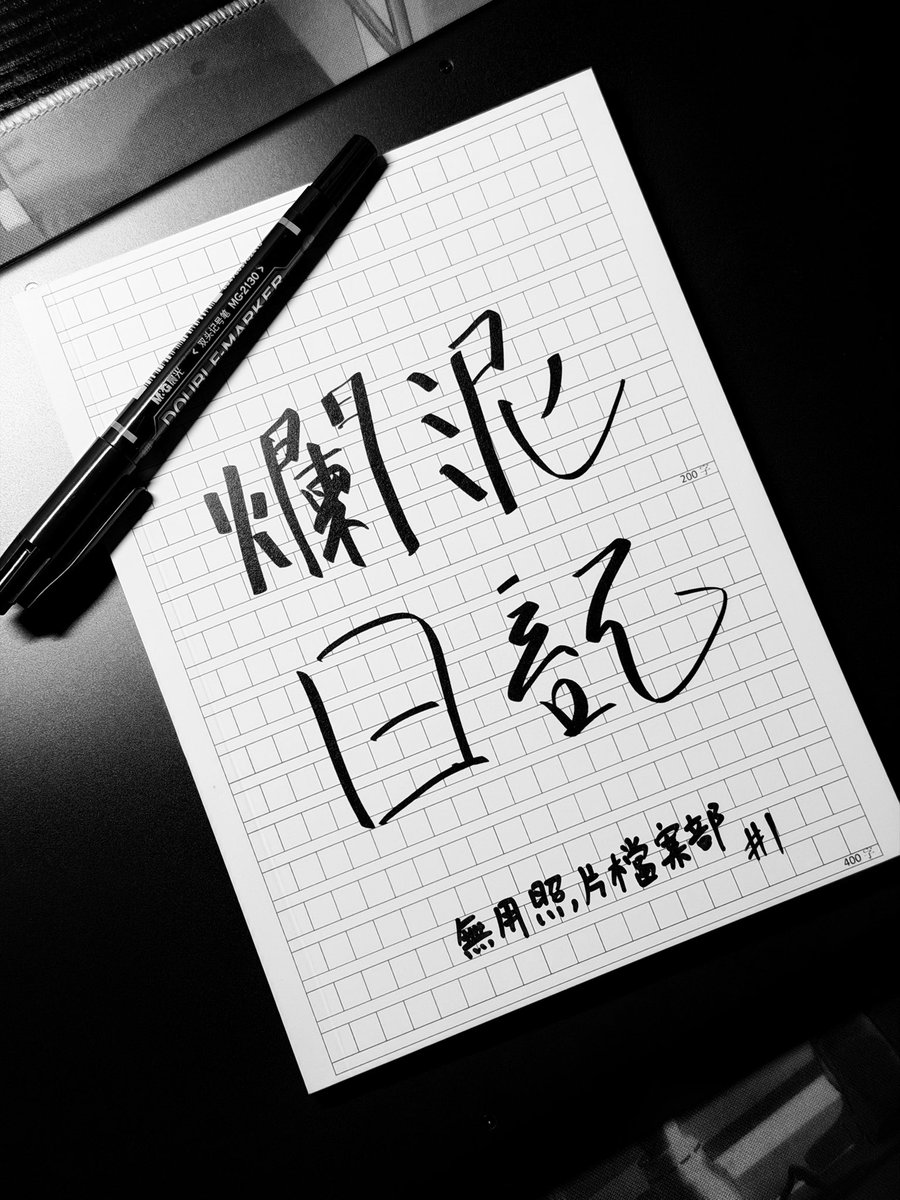 M&G 晨光 < 双头记号笔 MG-2130 >
DOUBLE-MARKER
爛泥
200字
日記
無用照片檔案部 #1
400字